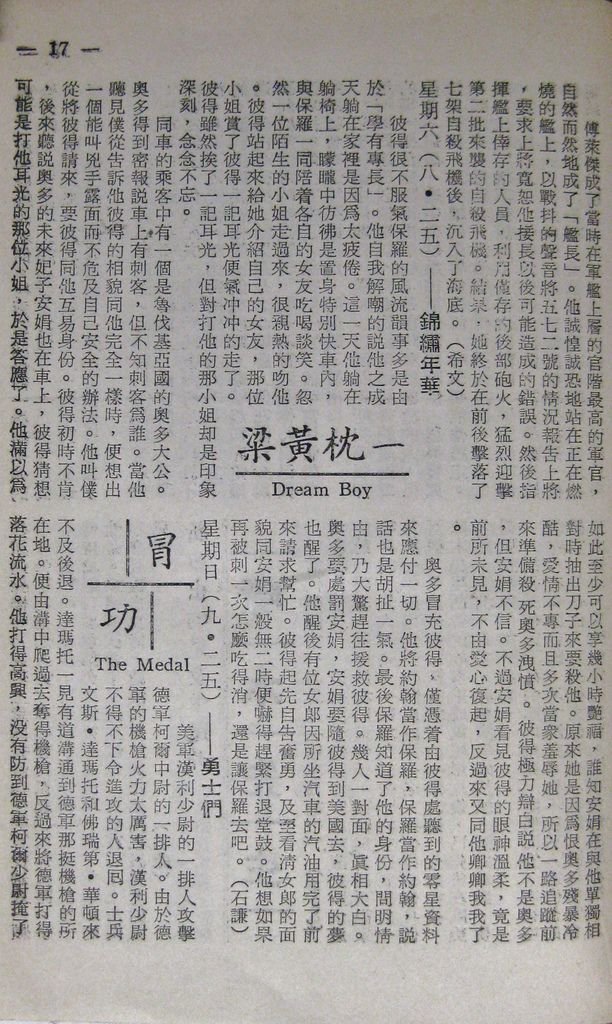 — 17 —
傅萊傑成了當時在軍艦上層的官階最高的軍官，
自然而然地成了「艦長」。他誠惶誠恐地站在正在燃
燒的艦上，以戰抖的聲音將五七二號的情況報告上將
，要求上將寬恕他接長以後可能造成的錯誤。然後指
揮艦上倖存的人員，利用僅存的後部砲火，猛烈迎擊
第二批來襲的自殺飛機。結果，她終於在前後擊落了
七架自殺飛機後，沉入了海底。（希文）
星期六（八•二五）——錦繡年華
一枕黃粱
Dream Boy
彼得很不服氣保羅的風流韻事多是由
於「學有專長」。他自我解嘲的說他之成
天躺在家裡是因爲太疲倦。這一天他躺在
躺椅上，朦朧中彷彿是置身特別快車內，
與保羅一同陪着各自的女友吃喝談笑。忽
然一位陌生的小姐走過來，很親熱的吻他
。彼得站起來給她介紹自己的女友，那位
小姐賞了彼得一記耳光便氣冲冲的走了。
彼得雖然挨了一記耳光，但對打他的那小姐却是印象
深刻，念念不忘。
同車的乘客中有一個是魯伐基亞國的奧多大公。
奧多得到密報說車上有刺客，但不知刺客爲誰。當他
聽見僕從告訴他彼得的相貌同他完全一樣時，便想出
一個能叫兇手露面而不危及自己安全的辦法。他叫僕
從將彼得請來，要彼得同他互易身份。彼得初時不肯
，後來聽說奧多的未來妃子安娟也在車上，彼得猜想
可能是打他耳光的那位小姐，於是答應了。他滿以爲
如此至少可以享幾小時艷福，誰知安娟在與他單獨相
對時抽出刀子來要殺他。原來她是因爲恨奧多殘暴冷
酷，愛情不專而且多次當衆羞辱她，所以一路追蹤前
來準備殺死奧多洩憤。彼得極力辯白說他不是奧多
，但安娟不信。不過安娟看見彼得的眼神溫柔，竟是
前所未見，不由愛心復起，反過來又同他卿卿我我了
。
奧多冒充彼得，僅憑着由彼得處聽到的零星資料
來應付一切。他將約翰當作保羅，保羅當作約翰，說
話也是胡扯一氣。最後保羅知道了他的身份，間明情
由，乃大驚趕往援救彼得。幾人一對面，眞相大白。
奧多要處罰安娟，安娟要隨彼得到美國去，彼得的夢
也醒了。他醒後有位女郎因所坐汽車的汽油用完了前
來請求幫忙。彼得起先自告奮勇，及至看清女郎的面
貌同安娟一般無二時便嚇得趕緊打退堂鼓。他想如果
再被刺一次怎麼吃得消，還是讓保羅去吧。（石謙）
星期日（九•二五）——勇士們
冒功
The Medal
美軍漢利少尉的一排人攻擊
德軍柯爾中尉的一排人。由於德
軍的機槍火力太厲害，漢利少尉
不得不下令進攻的人退囘。士兵
文斯•達瑪托和佛瑞第•華頓來
不及後退。達瑪托一見有道溝通到德軍那挺機槍的所
在地。便由溝中爬過去奪得機槍，反過來將德軍打得
落花流水。他打得高興，沒有防到德軍柯爾少尉掩了